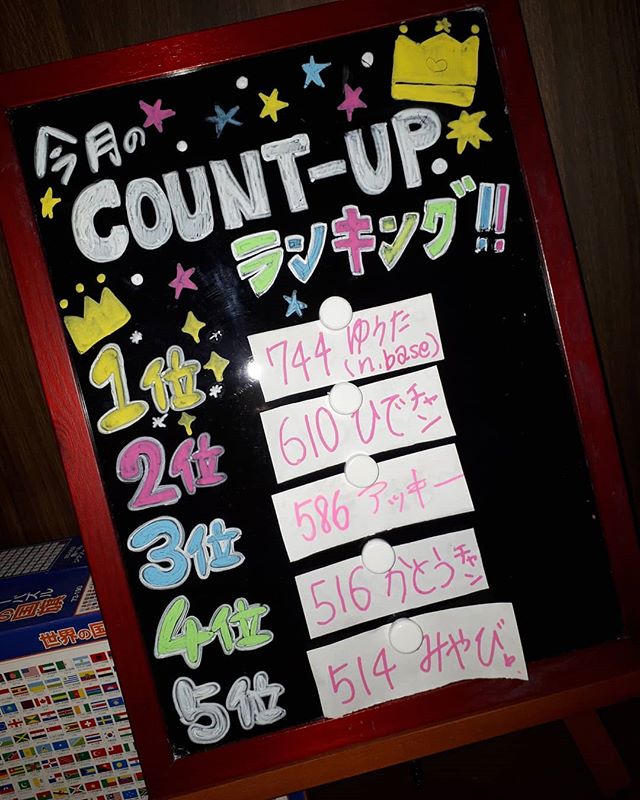 今月の
COUNT-UP.
ランキング!!
1位
744 ゆうた
(n.base)
2位
610 ひでチャン
3位
586 アッキー
4位
516 かとうチャン
5位
514 みやび。
世界の国